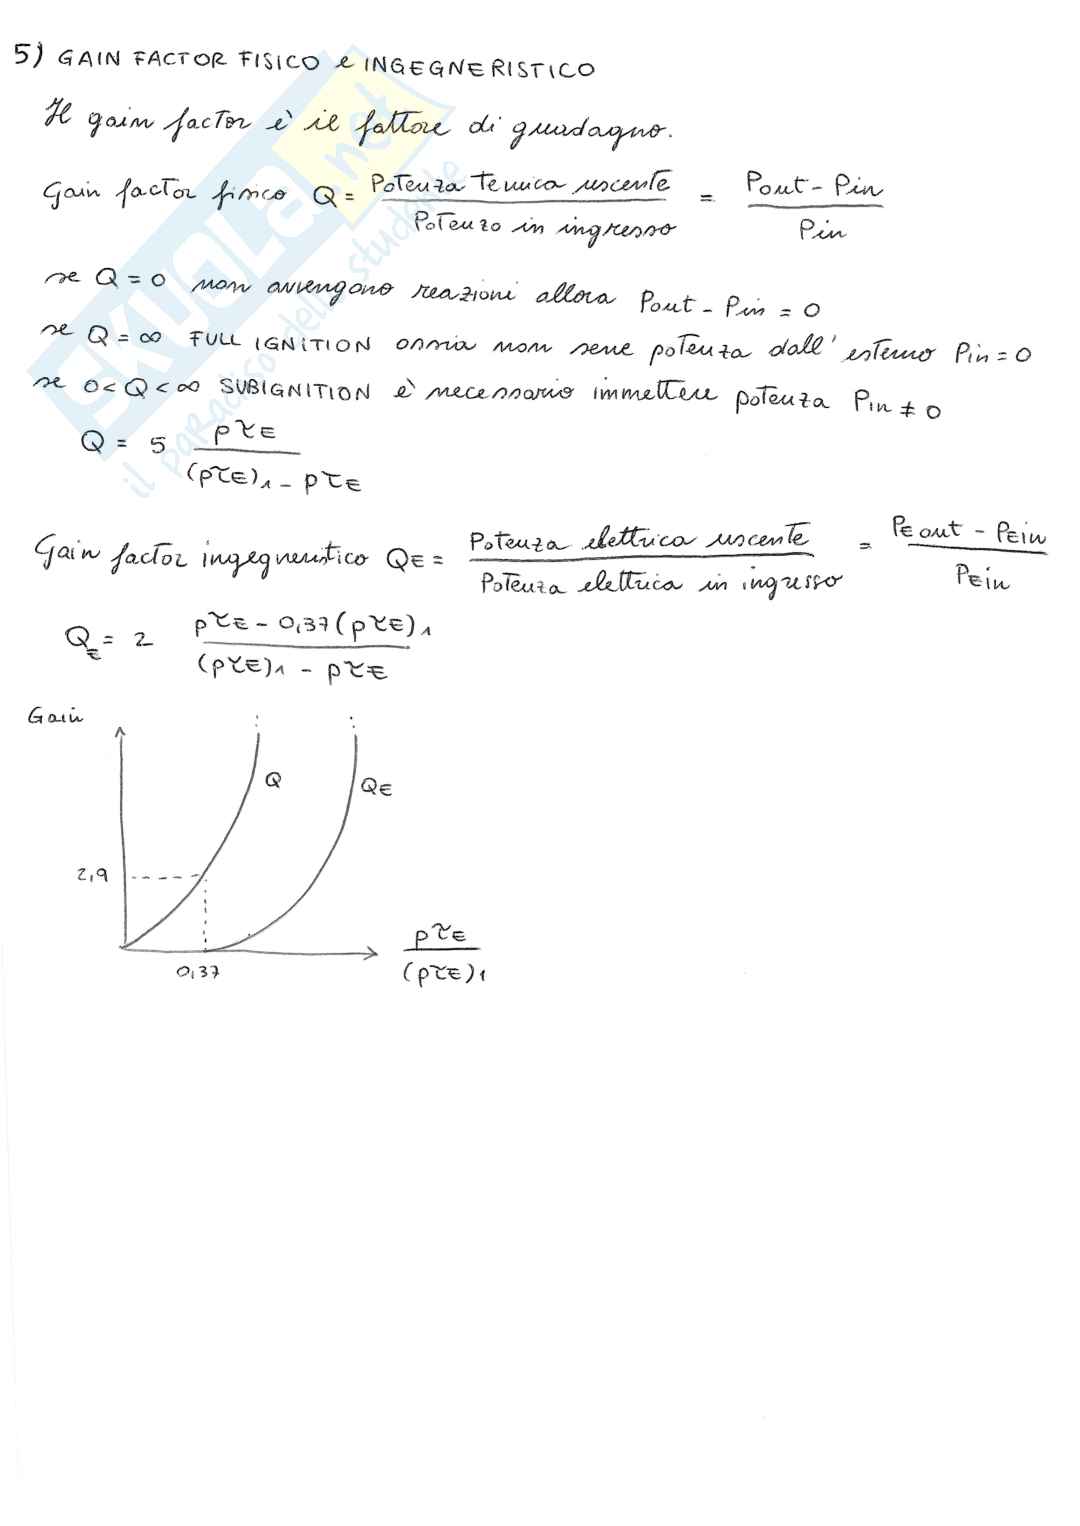 5) GAIN FACTOR FISICO e INGEGNERISTICO
Il gain factor è il fattore di guadagno.
Gain factor fisico Q = Potenza termica uscente / Potenza in ingresso = Pout - Pin / Pin
se Q = 0 non avvengono reazioni allora Pout - Pin = 0
se Q = ∞ FULL IGNITION ossia non serve potenza dall'esterno Pin = 0
se 0 < Q < ∞ SUBIGNITION è necessario immettere potenza Pin ≠ 0
Q = 5 pτE / (pτE)1 - pτE
Gain factor ingegneristico QE = Potenza elettrica uscente / Potenza elettrica in ingresso = PE out - PEin / PEin
QE = 2 pτE - 0,37(pτE)1 / (pτE)1 - pτE
Gain
Q
QE
2,9
0,37
pτE / (pτE)1
SKUOLA.net
il paradiso dello studente